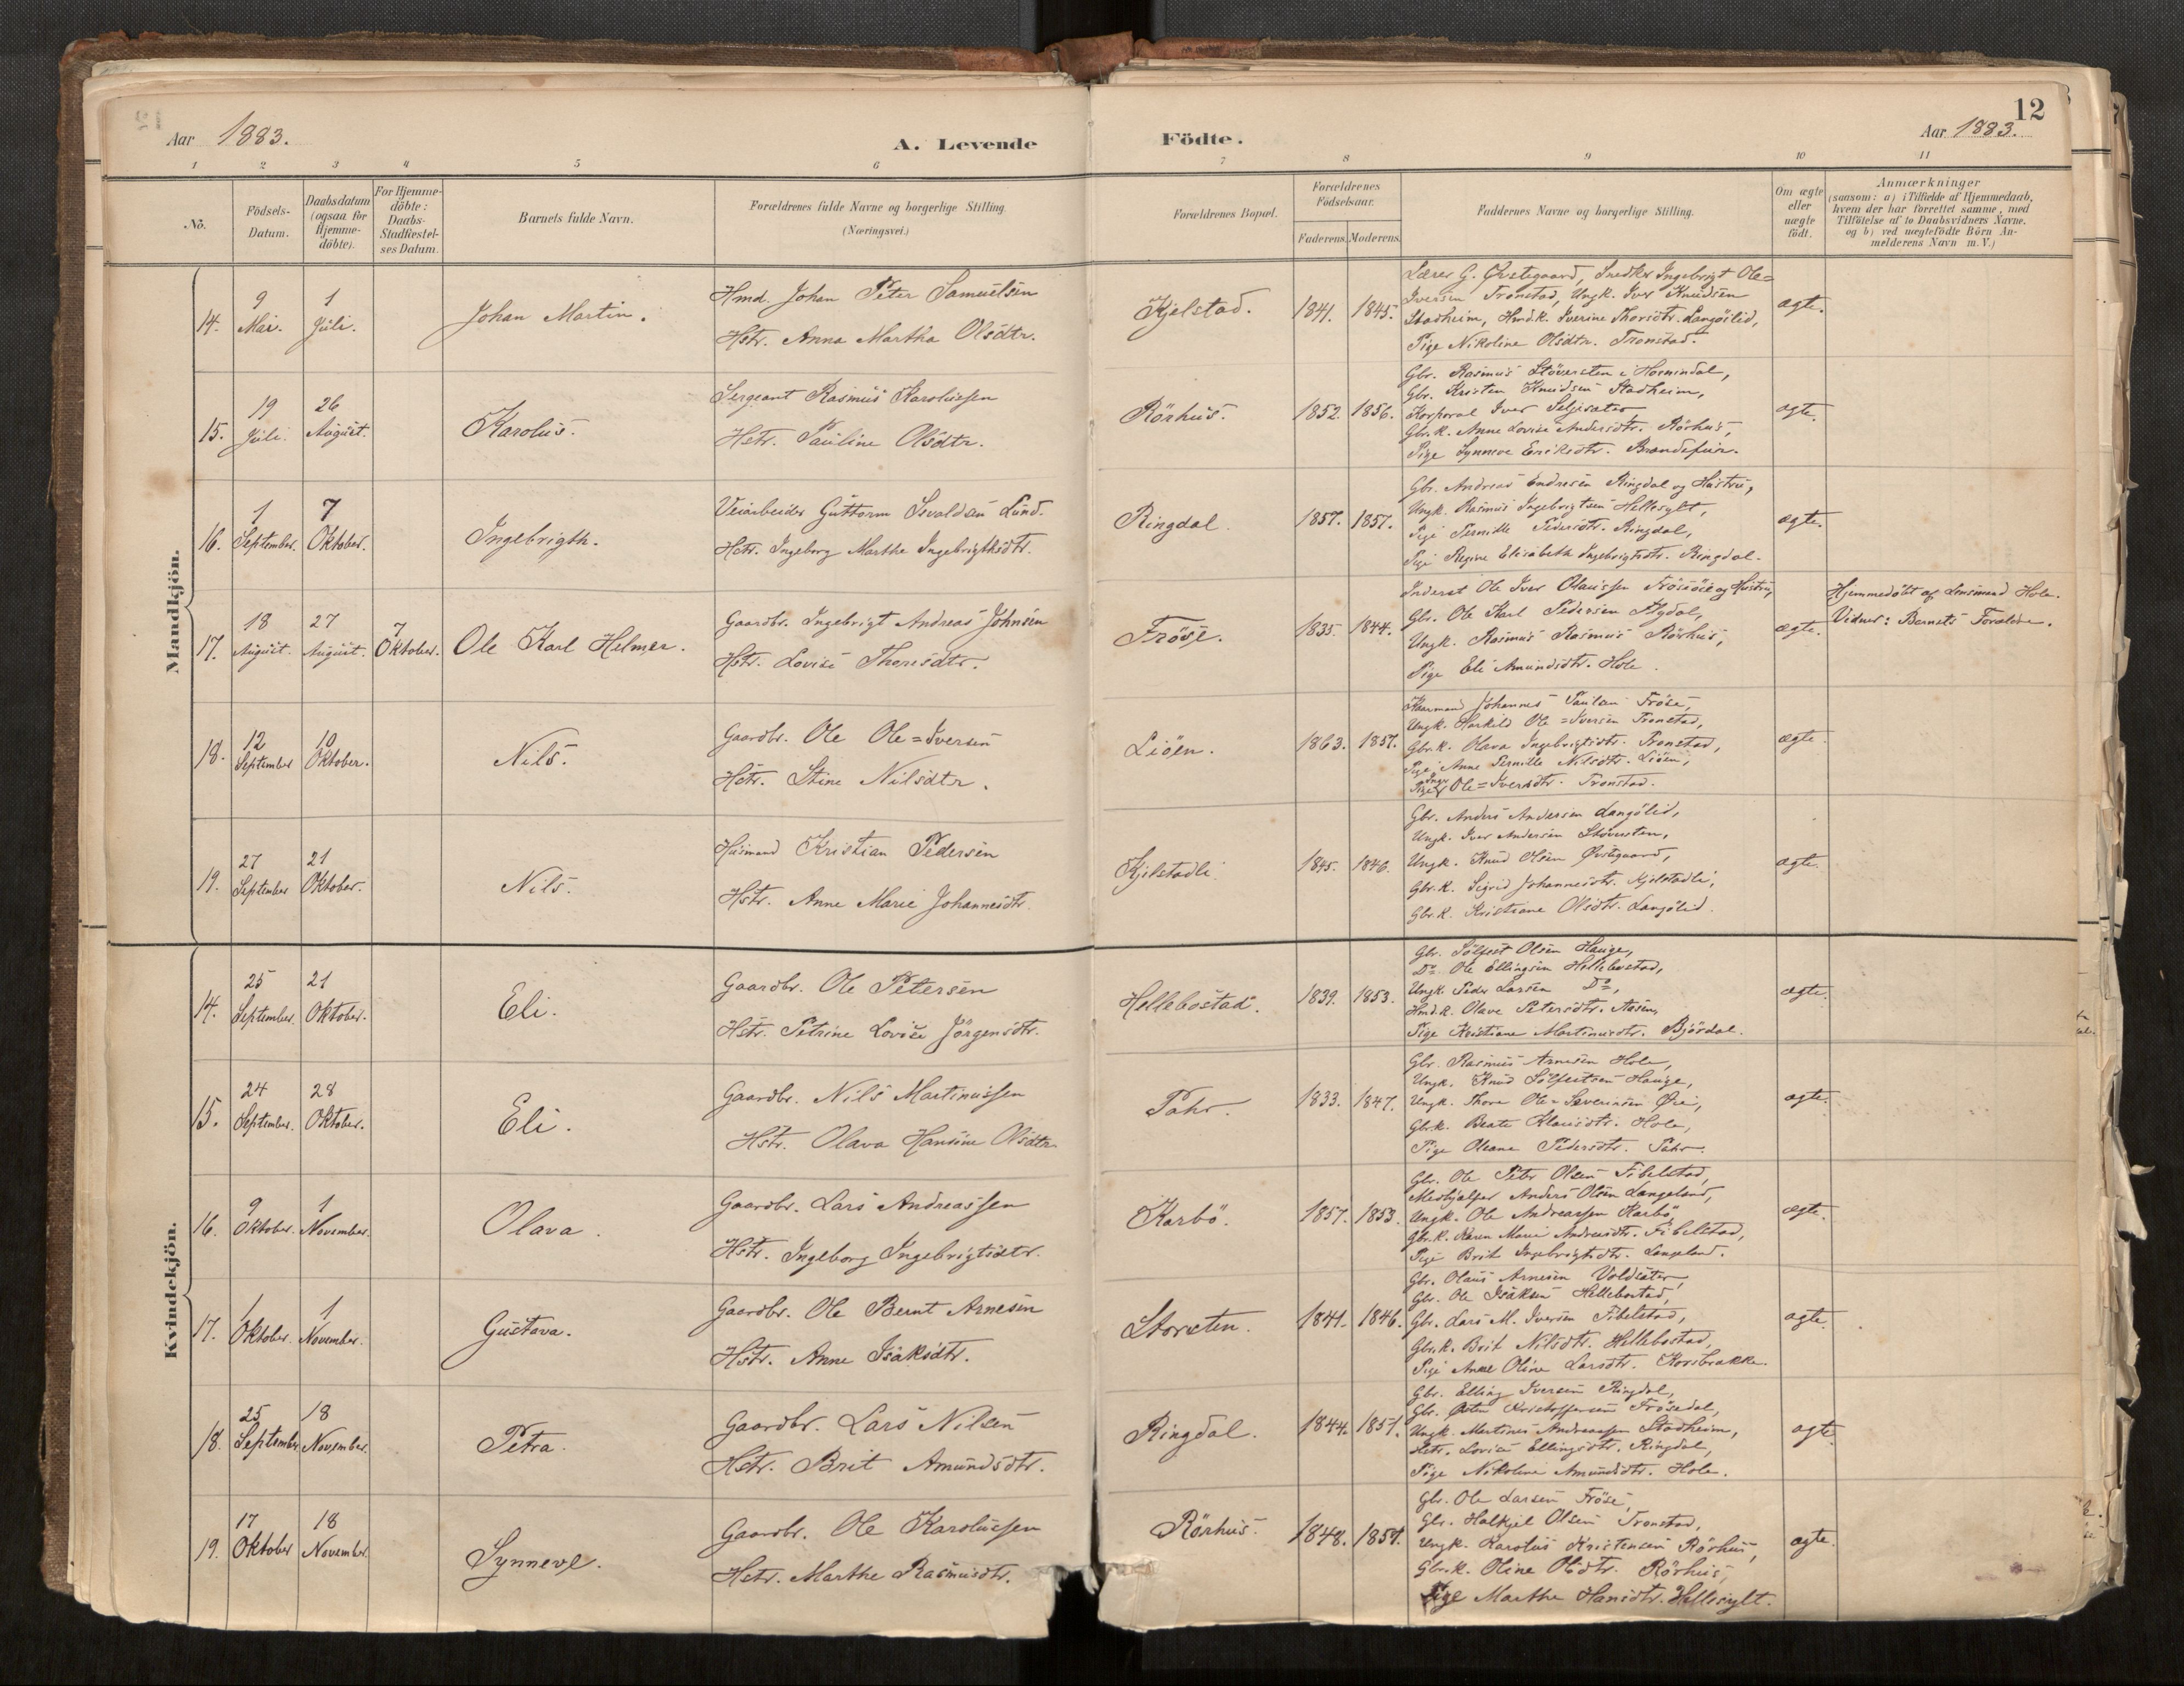 12
Aar 1883.
A. Levende Födte.
Aar 1883.
1 2 3 4 5 6 7 8 9 10 11
No.
Födsels-Datum.
Daabsdatum (ogsaa for Hjemme-döbte).
For Hjemme-döbte: Daabs-Stadfestel-ses Datum.
Barnets fulde Navn.
Forældrenes fulde Navne og borgerlige Stilling. (Næringsvei.)
Forældrenes Bopæl.
Forældrenes Födselsaar.
Faderens. Moderens.
Faddernes Navne og borgerlige Stilling.
Om ægte eller uægte födt.
Anmærkninger
(saasom: a) i Tilfælde af Hjemmedaab,
hvem der har forrettet samme, med
Tilföielse af to Daabsvidners Navne.
og b) ved uægtefödte Börn An-
melderens Navn m. V.)
Mandkjön.
14. 9 Mai. 1 Juli. Johan Martin.
Hmd. Johan Peter Samuelsen
Hstr. Anna Martha Olsdtr.
Kjelstad. 1841. 1845.
Lærer G. Østegaard, Snedker Ingebrigt Ole=
Iversen Tronstad, Ungk. Iver Knudsen
Stadheim, Hmd.k. Iverine Thorsdtr. Langölid,
Pige Nikoline Olsdtr. Tronstad.
ægte.
15. 19 Juli. 26 August. Karolus.
Sergeant Rasmus Karolussen
Hstr. Pauline Olsdtr.
Rörhus. 1852. 1856.
Gbr. Rasmus Stöversten i Hornindal,
Gbr. Kristen Knudsen Stadheim,
Korporal Iver Seljesater,
Gbr.k. Anne Lovise Andersdtr. Rörhus,
Pige Synneve Eriksdtr.
ægte.
16. 1 September. 7 Oktober. Ingebrigth.
Veiarbeider Guttorm Sevaldsen Lund.
Hstr. Ingeborg Marthe Ingebrigthsdtr.
Ringdal. 1857. 1857.
Gbr. Andreas Endresen Ringdal og Hustru,
Ungk. Rasmus Ingebrigtsen Hellesylt,
Pige Pernille Pedersdtr. Ringdal,
Pige Regine Elisabeth Ingebrigtsdtr. Ringdal.
ægte.
17. 18 August. 27 August. 7 Oktober. Ole Karl Helmer.
Gaardbr. Ingebrigt Andreas Johnsen
Hstr. Lovise Thoresdtr.
Fröse. 1835. 1844.
Inderst Ole Iver Olaussen Frösöie og Hustru,
Gbr. Ole Karl Pedersen Nydal,
Ungk. Rasmus Rasmus Rörhus,
Pige Eli Amundsdtr. Hole.
ægte.
Hjemmedöbt af Lensmand Hole.
Vidner: Barnets Forældre.
18. 12 September 10 Oktober. Nils.
Gaardbr. Ole Ole=Iversen
Hstr. Stine Nilsdtr.
Liöen. 1863. 1857.
Kaarmand Johannes Paulsen Fröse,
Ungk. Ole=Iversen Tronstad,
Gbr.k. Olava Ingebrigtsdtr. Tronstad,
Pige Anne Pernille Nilsdtr. Liöen,
Pige Inger Ole=Iversdtr. Tronstad.
ægte.
19. 27 September 21 Oktober. Nils.
Husmand Kristian Pedersen
Hstr. Anne Marie Johannesdtr.
Kjelstadli. 1845. 1846.
Gbr. Anders Andersen Langölid,
Ungk. Iver Andersen Stöversten,
Ungk. Knud Olsen Østegaard,
Gbr.k. Sigrid Johannesdtr. Kjelstadli,
Gbr.k. Kristiane Olsdtr. Langölid.
ægte.
Kvindekjön.
14. 25 September. 21 Oktober. Eli.
Gaardbr. Ole Petersen
Hstr. Petrine Lovise Jörgensdtr.
Hellebostad. 1839. 1853.
Gbr. Sölfest Olsen Hauge,
Do Ole Ellingsen Hellebostad,
Ungk. Peder Larsen Do,
Hmd.k. Olave Petersdtr. Aasen,
Pige Kristiane Martinusdtr. Björdal.
ægte.
15. 24 September. 28 Oktober. Eli.
Gaardbr. Nils Martinussen
Hstr. Olava Hansine Olsdtr.
Tahr. 1833. 1847.
Gbr. Rasmus Arnesen Hole,
Ungk. Knud Sölfestsen Hauge,
Ungk. Thore Ole=Severinsen Øie,
Gbr.k. Beate Klausdtr. Hole,
Pige Oleane Pedersdtr. Tahr.
ægte.
16. 9 Oktober. 1 November. Olava.
Gaardbr. Lars Andreassen
Hstr. Ingeborg Ingebrigtsdtr.
Karbö. 1857. 1853.
Gbr. Ole Peter Olsen Fibelstad,
Medhjælper Anders Olsen Langeland,
Ungk. Ole Andreassen Karbö,
Gbr.k. Karen Marie Andreasdtr. Fibelstad,
Pige Brit Ingebrigtsdtr. Langeland.
ægte.
17. 1 Oktober. 1 November. Gustava.
Gaardbr. Ole Bernt Arnesen
Hstr. Anne Isaksdtr.
Storeten. 1841. 1846.
Gbr. Olaus Arnesen Voldsæter,
Gbr. Ole Isaksen Hellebostad,
Gbr. Lars M. Iversen Fibelstad,
Gbr.k. Brit Nilsdtr. Hellebostad,
Pige Anne Oline Larsdtr. Korsbrekke.
ægte.
18. 25 September 18 November. Petra.
Gaardbr. Lars Nilsen
Hstr. Brit Amundsdtr.
Ringdal. 1844. 1857.
Gbr. Elling Iversen Ringdal,
Gbr. Østen Kristoffersen Frösedal,
Ungk. Martinus Andreassen Stadheim,
Hstr. Lovise Ellingsdtr. Ringdal,
Pige Nikoline Amundsdtr. Hole.
ægte.
19. 17 Oktober 18 November. Synneve.
Gaardbr. Ole Karolussen
Hstr. Marthe Rasmusdtr.
Rörhus. 1848. 1857.
Gbr. Ole Larsen Fröse,
Gbr. Halkjel Olsen Tronstad,
Ungk. Karolus Kristensen Rörhus,
Gbr.k. Oline Olsdtr. Rörhus,
Pige Marthe Hansdtr. Hellesylt.
ægte.